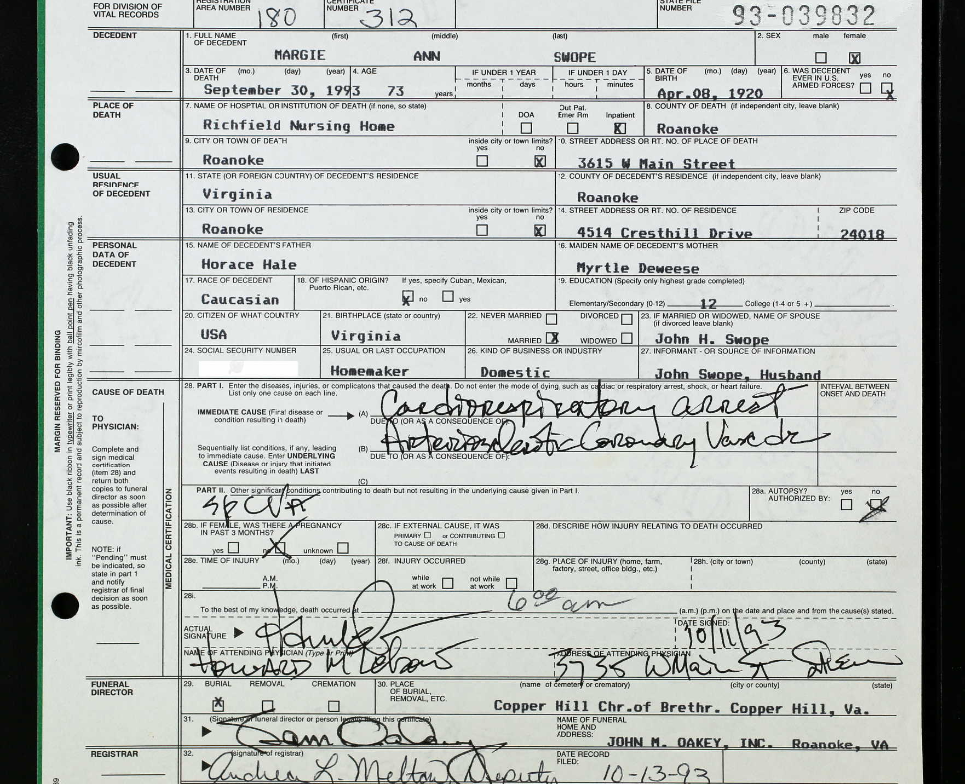 FOR DIVISION OF REGISTRATION CERTIFICATE STATE FILE
VITAL RECORDS AREA NUMBER 180 NUMBER 312 NUMBER 93-039832
DECEDENT 1. FULL NAME (first) (middle) (last) 2. SEX male female
OF DECEDENT MARGIE ANN SWOPE X
3. DATE OF (mo.) (day) (year) 4. AGE IF UNDER 1 YEAR IF UNDER 1 DAY 5. DATE OF (mo.) (day) (year) 6. WAS DECEDENT yes no
DEATH months days hours minutes BIRTH EVER IN U.S. ARMED FORCES? X
September 30, 1993 73 years Apr.08, 1920
PLACE OF DEATH 7. NAME OF HOSPTIAL OR INSTITUTION OF DEATH (if none, so state) DOA Out Pat. Emer Rm Inpatient 8. COUNTY OF DEATH (if independent city, leave blank)
Richfield Nursing Home X Roanoke
9. CITY OR TOWN OF DEATH inside city or town limits? yes no 10. STREET ADDRESS OR RT. NO. OF PLACE OF DEATH
Roanoke X 3615 W Main Street
USUAL RESIDENCE OF DECEDENT 11. STATE (OR FOREIGN COUNTRY) OF DECEDENT'S RESIDENCE 12. COUNTY OF DECEDENT'S RESIDENCE (if independent city, leave blank)
Virginia Roanoke
13. CITY OR TOWN OF RESIDENCE inside city or town limits? yes no 14. STREET ADDRESS OR RT. NO. OF RESIDENCE ZIP CODE
Roanoke X 4514 Cresthill Drive 24018
PERSONAL DATA OF DECEDENT 15. NAME OF DECEDENT'S FATHER 16. MAIDEN NAME OF DECEDENT'S MOTHER
Horace Hale Myrtle Deweese
17. RACE OF DECEDENT 18. OF HISPANIC ORIGIN? If yes, specify Cuban, Mexican, Puerto Rican, etc. 19. EDUCATION (Specify only highest grade completed)
Caucasian X no yes Elementary/Secondary (0-12) 12 College (1-4 or 5 +)
20. CITIZEN OF WHAT COUNTRY 21. BIRTHPLACE (state or country) 22. NEVER MARRIED DIVORCED 23. IF MARRIED OR WIDOWED, NAME OF SPOUSE (if divorced leave blank)
USA Virginia MARRIED X WIDOWED John H. Swope
24. SOCIAL SECURITY NUMBER 25. USUAL OR LAST OCCUPATION 26. KIND OF BUSINESS OR INDUSTRY 27. INFORMANT - OR SOURCE OF INFORMATION
Homemaker Domestic John Swope, Husband
CAUSE OF DEATH 28. PART I. Enter the diseases, injuries, or complicatons that caused the death. Do not enter the mode of dying, such as cardiac or respiratory arrest, shock, or heart failure. INTERVAL BETWEEN
List only one cause on each line. ONSET AND DEATH
IMMEDIATE CAUSE (Final disease or condition resulting in death) (A) Cardiorespiratory arrest
DUE TO (OR AS A CONSEQUENCE OF)
Sequentially list conditions, if any, leading to immediate cause. Enter UNDERLYING CAUSE (Disease or injury that initiated events resulting in death) LAST (B) Coronary
DUE TO (OR AS A CONSEQUENCE OF)
(C)
TO PHYSICIAN:
Complete and sign medical certification (item 28) and return both copies to funeral director as soon as possible after determination of cause.
NOTE: if "Pending" must be indicated, so state in part 1 and notify registrar of final decision as soon as possible.
MARGIN RESERVED FOR BINDING
IMPORTANT: Use black ribbon in typewriter or print legibly with ball point pen having black unfading ink. This is a permanent record and subject to reproduction by microfilm and other photographic process.
MEDICAL CERTIFICATION
PART II. Other significant conditions contributing to death but not resulting in the underlying cause given in Part I. 28a. AUTOPSY? AUTHORIZED BY: yes no
S/P CVA
28b. IF FEMALE, WAS THERE A PREGNANCY IN PAST 3 MONTHS? yes no unknown 28c. IF EXTERNAL CAUSE, IT WAS PRIMARY or CONTRIBUTING TO CAUSE OF DEATH 28d. DESCRIBE HOW INJURY RELATING TO DEATH OCCURRED
28e. TIME OF INJURY (mo.) (day) (year) A.M. P.M. 28f. INJURY OCCURRED while at work not while at work 28g. PLACE OF INJURY (home, farm, factory, street, office bldg., etc.) 28h. (city or town) (county) (state)
28i.
To the best of my knowledge, death occurred at 6:00 am (a.m.) (p.m.) on the date and place and from the cause(s) stated.
ACTUAL SIGNATURE DATE SIGNED: 10/11/93
NAME OF ATTENDING PHYSICIAN (Type or Print) ADDRESS OF ATTENDING PHYSICIAN
Howard M 3735 W Main St Salem
FUNERAL DIRECTOR 29. BURIAL REMOVAL CREMATION 30. PLACE OF BURIAL, REMOVAL, ETC. (name of cemetery or crematory) (city or county) (state)
X Copper Hill Chr.of Brethr. Copper Hill, Va.
31. (Signature of funeral director or person legally filing this certificate) NAME OF FUNERAL HOME AND ADDRESS:
Sam Oakey JOHN M. OAKEY, INC. Roanoke, VA
REGISTRAR 32. (signature of registrar) DATE RECORD FILED:
Andrea L. Melton, Deputy 10-13-93